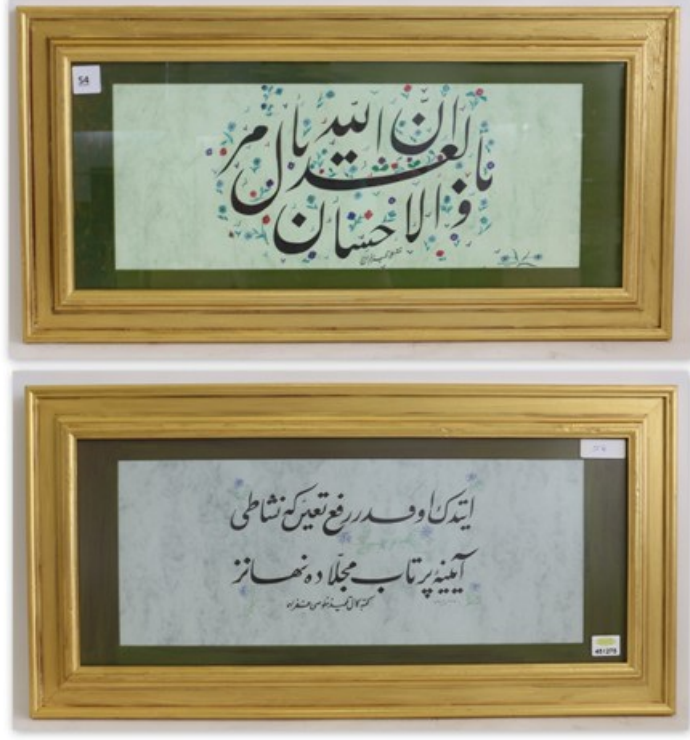 54
ان الله يامر
بالعدل
والاحسان
ایتدك اوقدر رفع تعیّن که نشاطی
آیینهٔ پرتاب مجلّاده نهانز